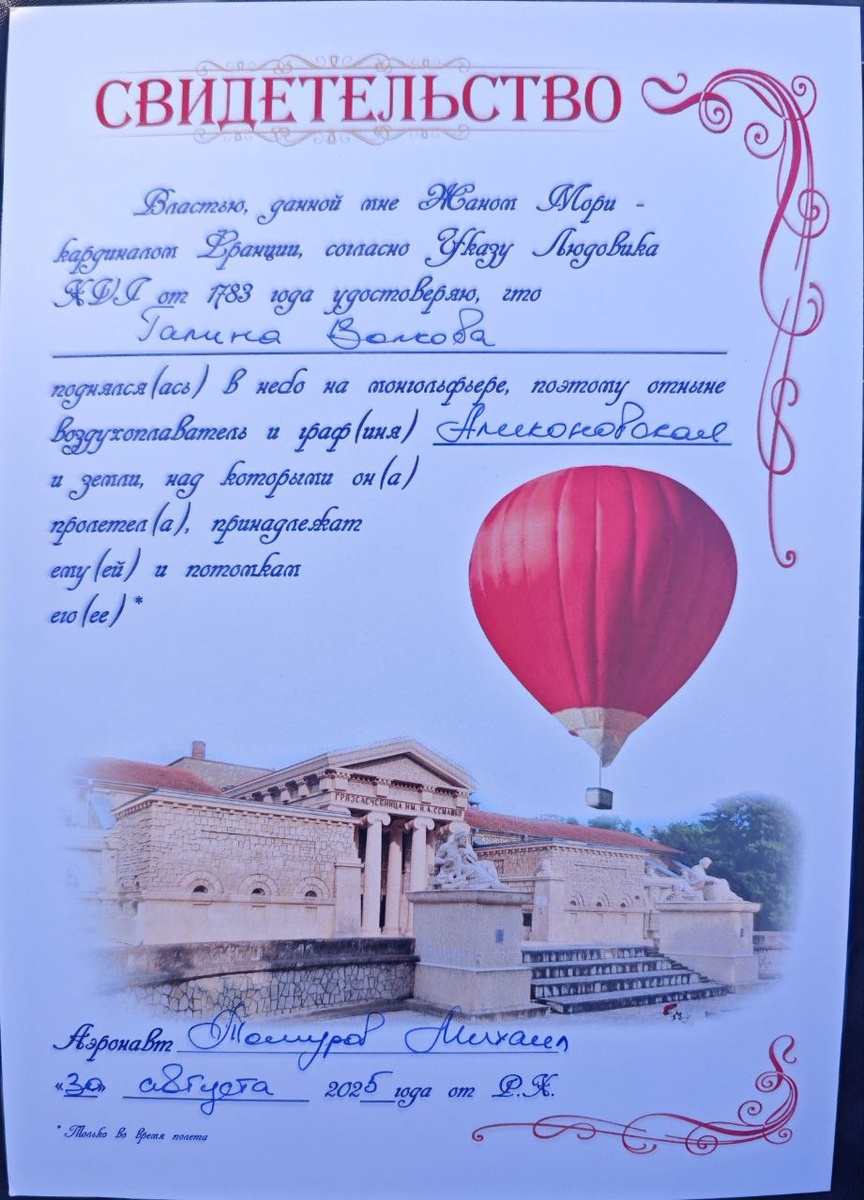 СВИДЕТЕЛЬСТВО
Властью, данной мне Жаном Мори -
кардиналом Франции, согласно Указу Людовика
XVI от 1783 года удостоверяю, что
Галина Волкова
поднялся(ась) в небо на монгольфьере, поэтому отныне
воздухоплаватель и граф(иня)
и земли, над которыми он(а)
пролетел(а), принадлежат
ему(ей) и потомкам
его(ее) *
ГРЯЗЕЛЕЧЕБНИЦА ИМ. Н.А. СЕМАШКО
Аэронавт Михаил
«30» августа 2025 года от Р.Х.
* Только во время полета